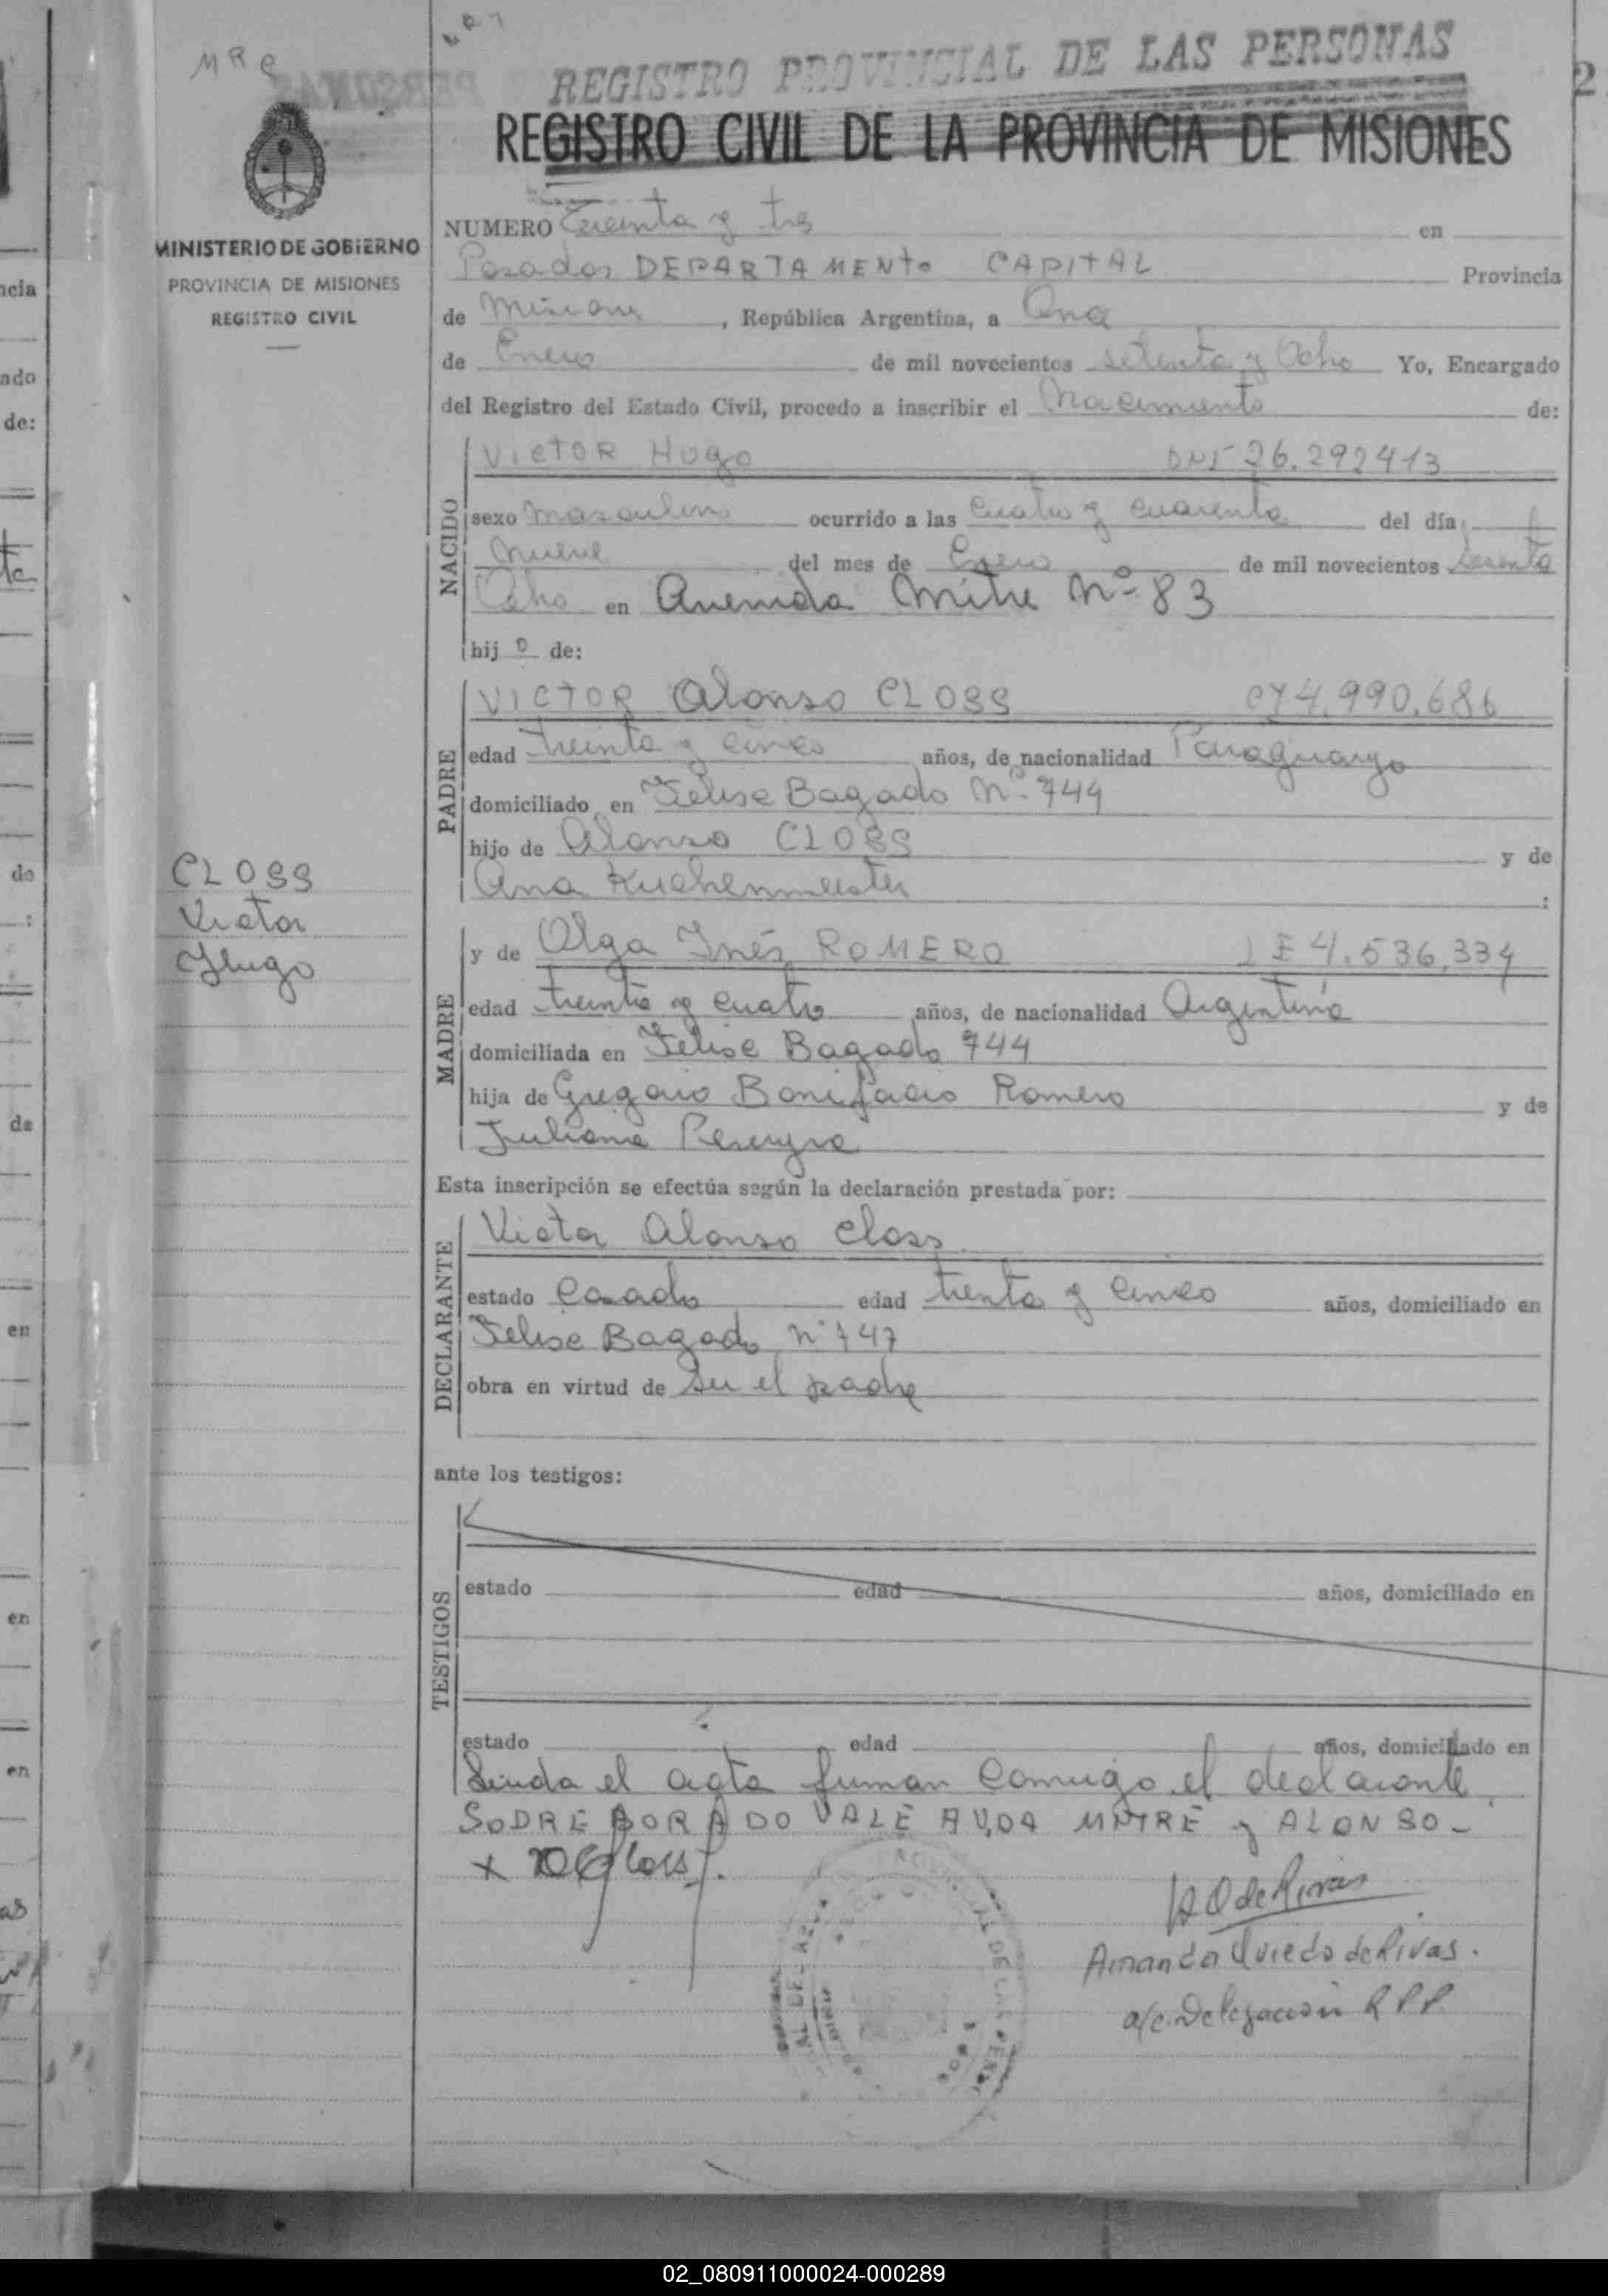 MRC
REGISTRO PROVINCIAL DE LAS PERSONAS
REGISTRO CIVIL DE LA PROVINCIA DE MISIONES
MINISTERIO DE GOBIERNO
PROVINCIA DE MISIONES
REGISTRO CIVIL
CLOSS
Victor
Hugo
NUMERO Treinta y tres en
Posadas DEPARTAMENTO CAPITAL Provincia
de Misiones, República Argentina, a Once
de Enero de mil novecientos setenta y Ocho Yo, Encargado
del Registro del Estado Civil, procedo a inscribir el Nacimiento de:
NACIDO
VICTOR Hugo DNI 26.292413
sexo masculino ocurrido a las cuatro y cuarenta del día
Nueve del mes de Enero de mil novecientos
Ocho en Avenida Mitre Nº 83
hijo de:
PADRE
VICTOR Alonso CLOSS 4.990.686
edad treinta y cinco años, de nacionalidad Paraguayo
domiciliado en Felise Bagado Nº 744
hijo de Alonso CLOSS y de
Ana Kuchenmeister :
MADRE
y de Olga Inés ROMERO 4.536,334
edad treinta y cuatro años, de nacionalidad Argentina
domiciliada en Felise Bagado 744
hija de Gregorio Bonifacio Romero y de
Juliana Pereyra
Esta inscripción se efectúa según la declaración prestada por:
DECLARANTE
Victor Alonso Closs
estado Casado edad trenta y cinco años, domiciliado en
Felise Bagado Nº 747
obra en virtud de ser el padre
ante los testigos:
TESTIGOS
estado edad años, domiciliado en
estado edad años, domiciliado en
Leida el acta firman conmigo el declarante.
SOBRE BORRADO VALE AVDA MITRE y ALONSO -
Amanda Oviedo de Rivas.
a/c. Delegación R P P.
02_080911000024-000289